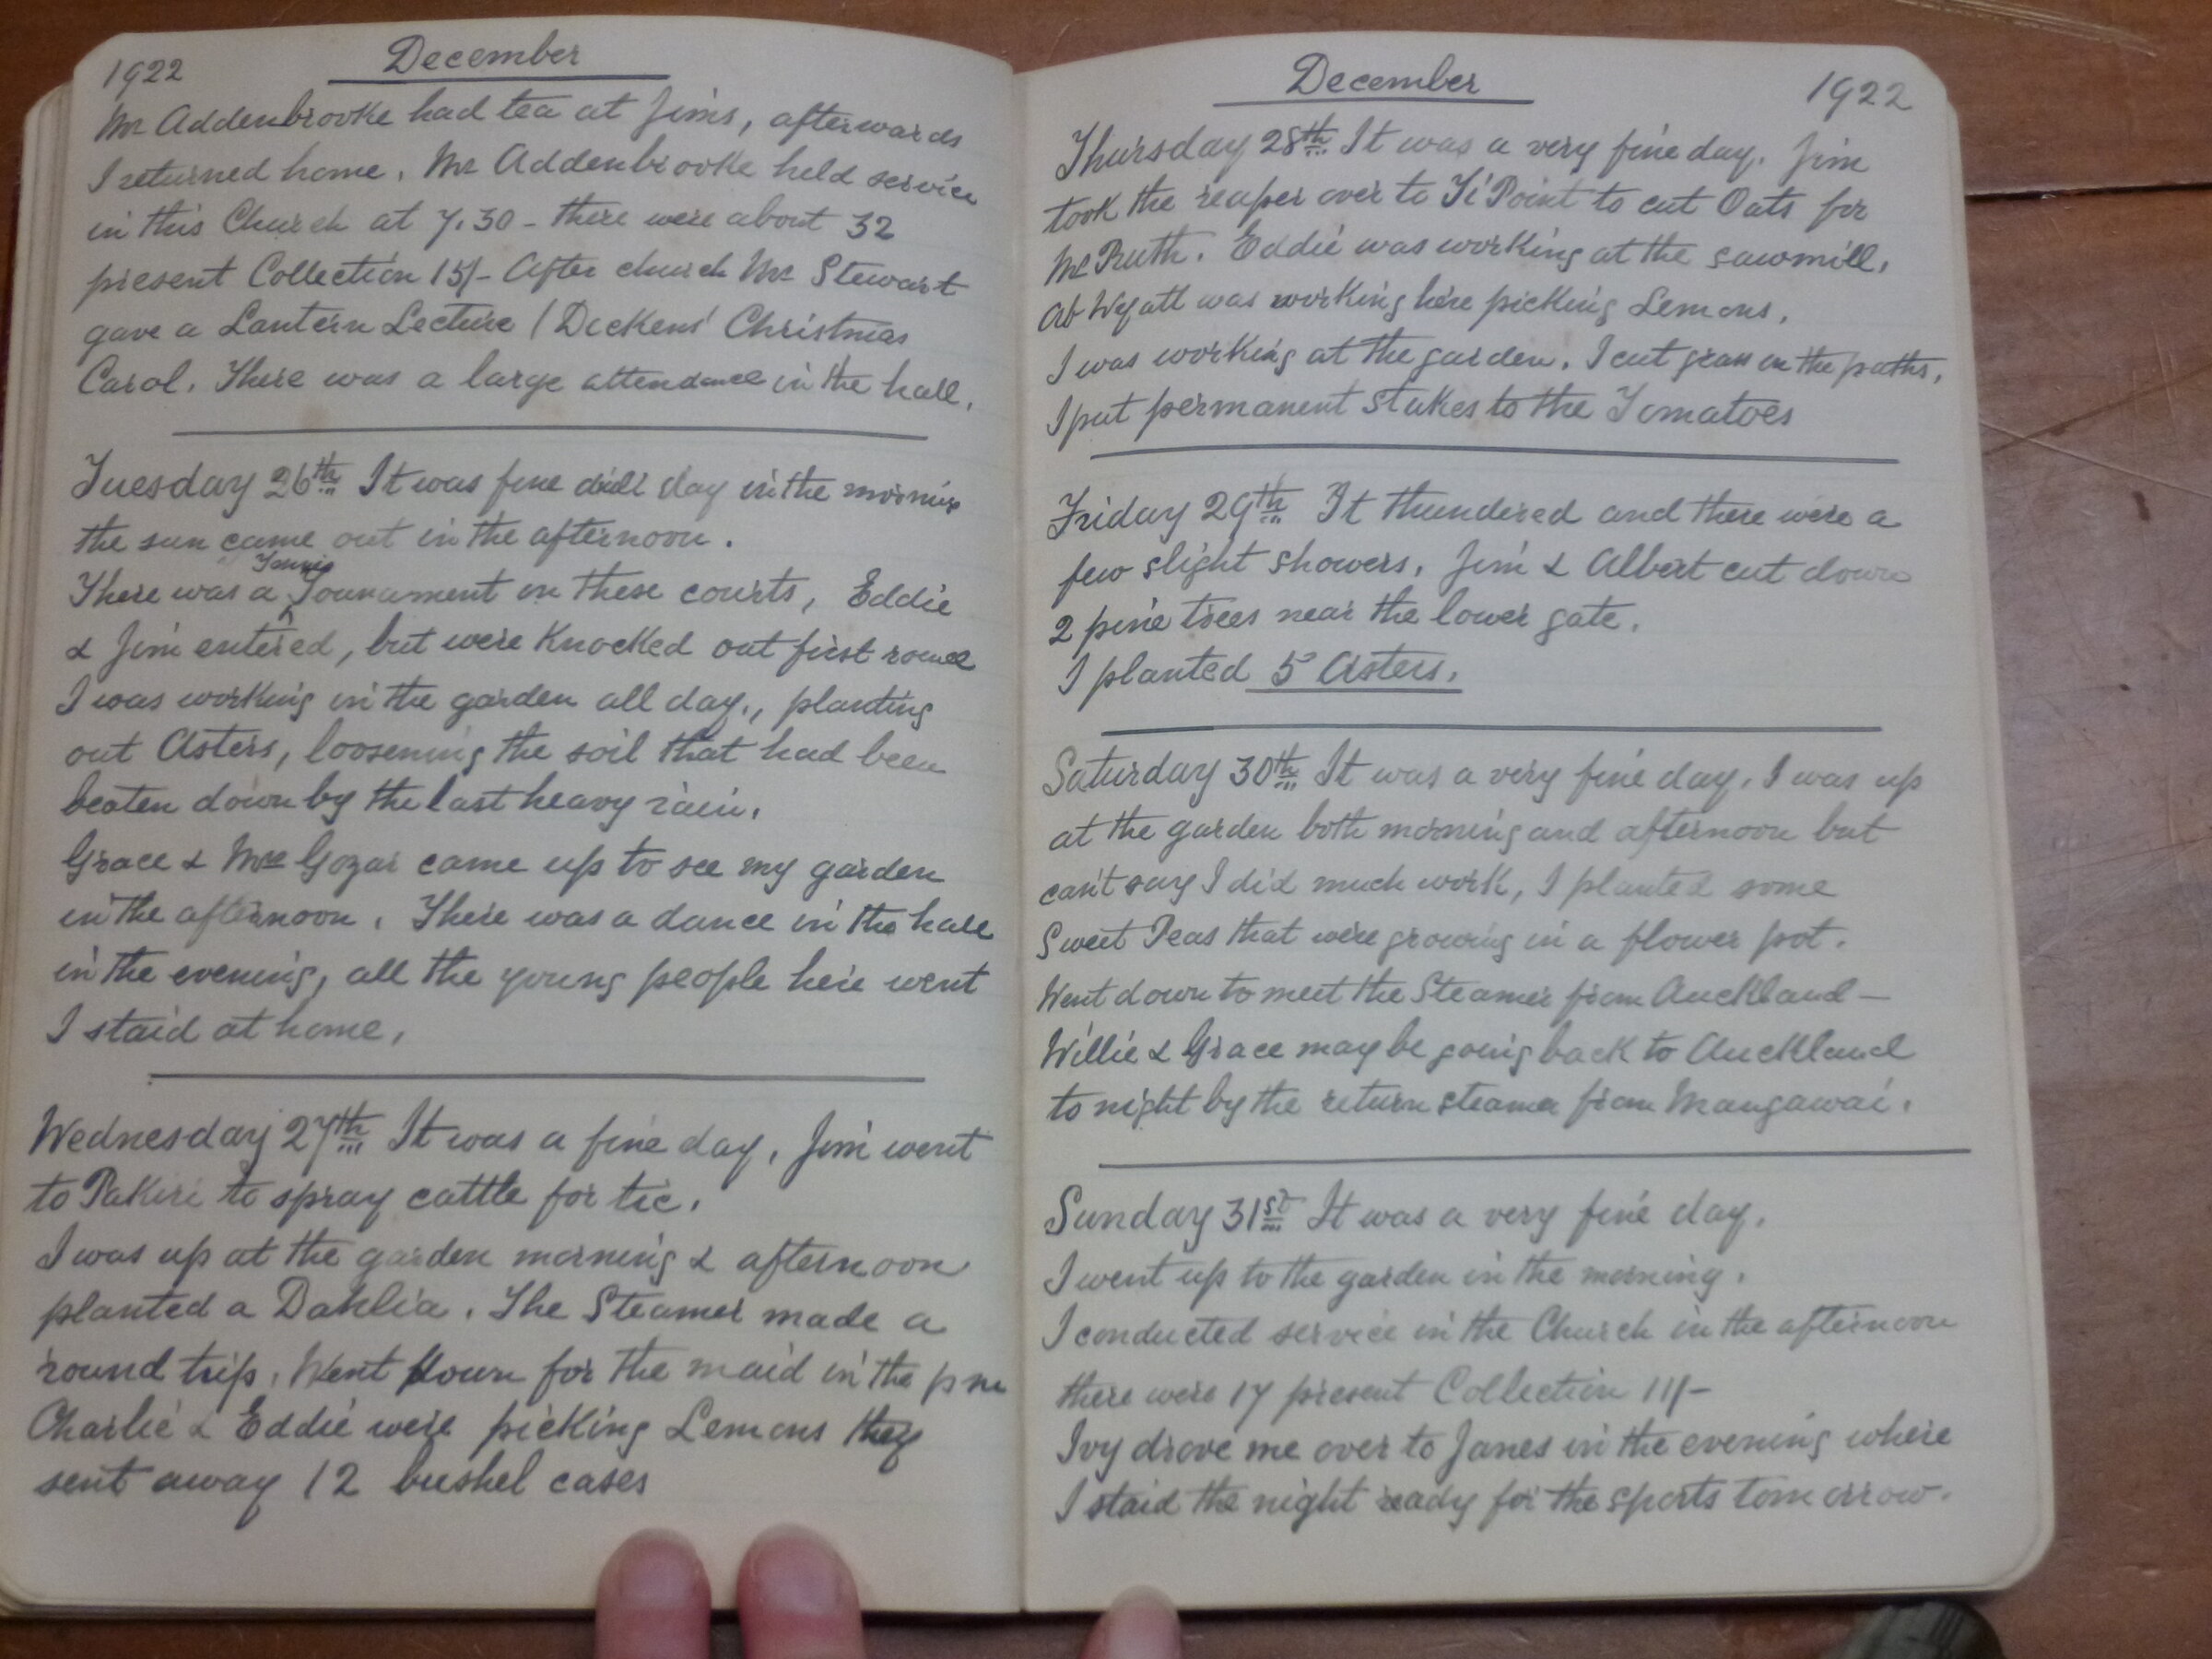 1922 December
Mr Addenbrooke had tea at Jims, afterwards
I returned home. Mr Addenbrooke held service
in this Church at 7.30 - there were about 32
present Collection 15/- After church Mr Stewart
gave a Lantern Lecture (Dickens' Christmas
Carol. There was a large attendance in the hall.
Tuesday 26th It was fine dull day in the morning
the sun came out in the afternoon.
There was a Tennis Tournament on these courts, Eddie
& Jim entered, but were Knocked out first round
I was working in the garden all day., planting
out Asters, loosening the soil that had been
beaten down by the last heavy rain.
Grace & Mrs Gozar came up to see my garden
in the afternoon. There was a dance in the hall
in the evening, all the young people here went
I staid at home.
Wednesday 27th It was a fine day, Jim went
to Pakiri to spray cattle for tic.
I was up at the garden morning & afternoon
planted a Dahlia. The Steamer made a
round trip. Went down for the maid in the pm
Charlie & Eddie were picking Lemons they
sent away 12 bushel cases
December 1922
Thursday 28th It was a very fine day. Jim
took the reaper over to Ti Point to cut Oats for
Mr Ruth. Eddie was working at the sawmill.
Ab Wyatt was working here picking Lemons.
I was working at the garden. I cut grass on the paths.
I put permanent stakes to the Tomatoes
Friday 29th It thundered and there were a
few slight showers. Jim & Albert cut down
2 pine trees near the lower gate.
I planted 5 Asters.
Saturday 30th It was a very fine day. I was up
at the garden both morning and afternoon but
can't say I did much work, I planted some
Sweet Peas that were growing in a flower pot.
Went down to meet the Steamer from Auckland -
Willie & Grace may be going back to Auckland
to night by the return steamer from Mangawai.
Sunday 31st It was a very fine day.
I went up to the garden in the morning.
I conducted service in the Church in the afternoon
there were 17 present Collection 11/-
Ivy drove me over to Janes in the evening where
I staid the night ready for the sports tomorrow.